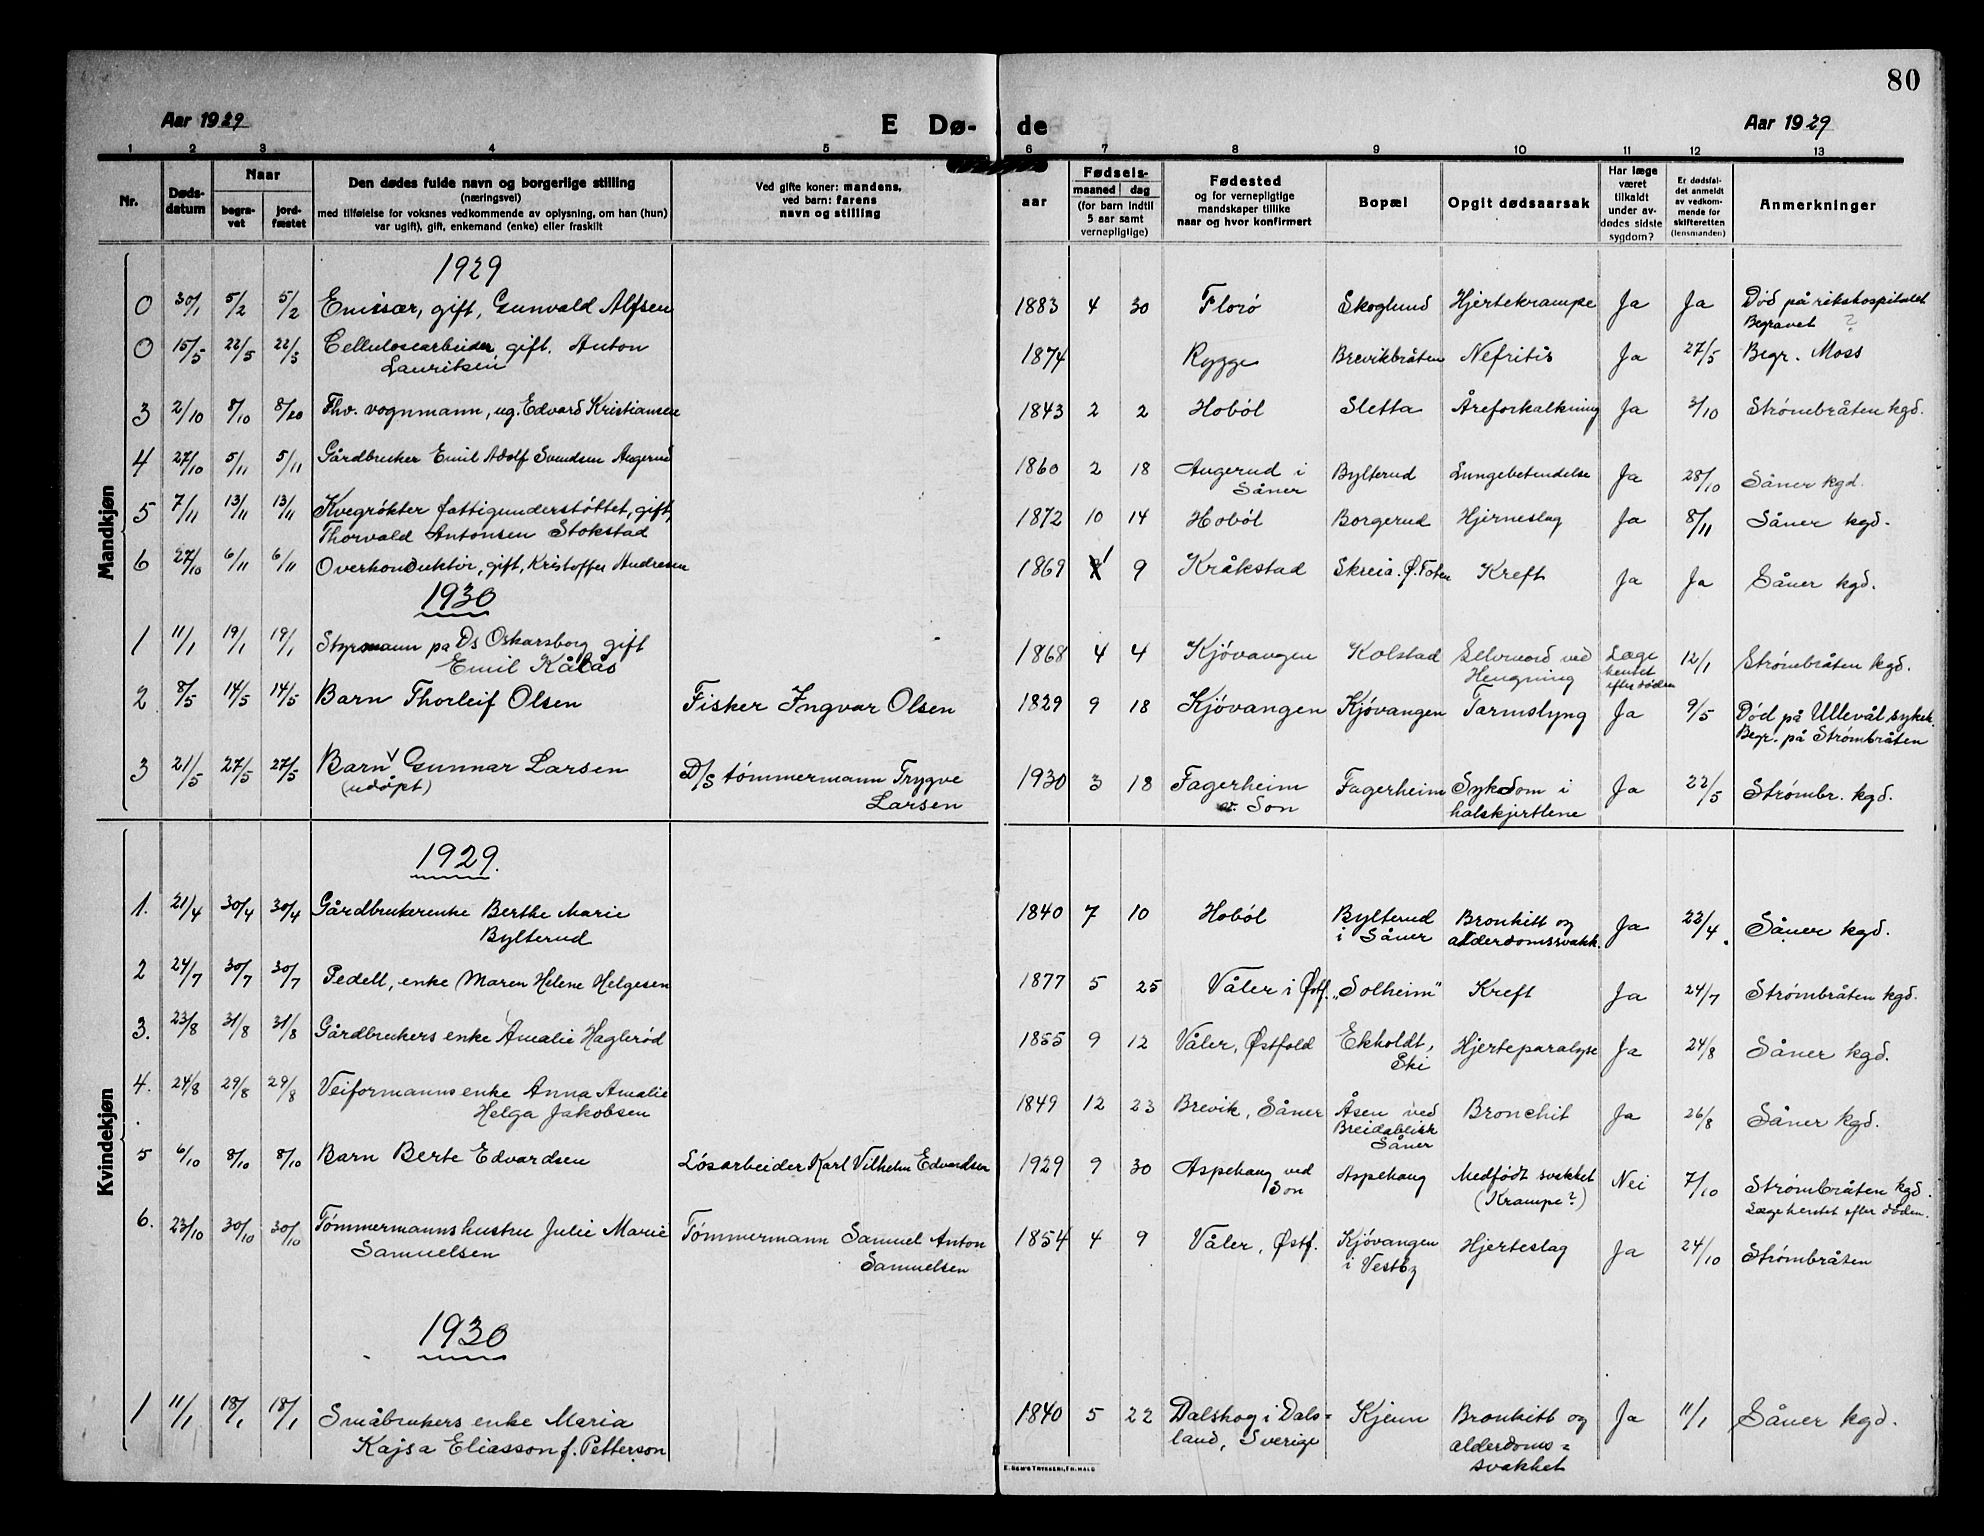 80
Aar 1929 E Dø- de Aar 1929
1 2 3 4 5 6 7 8 9 10 11 12 13
Nr. Døds-datum Naar begra-vet jord-fæstet Den dødes fulde navn og borgerlige stilling (næringsvei) med tilføielse for voksnes vedkommende av oplysning, om han (hun) var ugift), gift, enkemand (enke) eller fraskilt Ved gifte koner: mandens, ved barn: farens navn og stilling aar Fødsels- maaned dag (for barn indtil 5 aar samt vernepligtige) Fødested og for vernepligtige mandskaper tillike naar og hvor konfirmert Bopæl Opgit dødsaarsak Har læge været tilkaldt under av-dødes sidste sygdom? Er dødsfal-det anmeldt av vedkom-mende for skifteretten (lensmanden) Anmerkninger
Mandkjøn
1929
0 30/1 5/2 5/2 Emissær, gift, Gunvald Alfsen 1883 4 30 Florö Skoglund Hjertekrampe Ja Ja Död på rikshospitalet
Begravet ?
0 15/5 22/5 22/5 Cellulosearbeider gift. Anton 1874 Rygge Brevikbråten Nefritis Ja 27/5 Begr. Moss
Lauritsen
3 2/10 8/10 8/10 Fhv. vognmann, ug. Edvard Kristiansen 1843 2 2 Hoböl Sletta Åreforkalkning Ja 3/10 Strömbråten kgd.
4 27/10 5/11 5/11 Gårdbruker Emil Adolf Svendsen Augerud 1860 2 18 Augerud i Bylterud Lungebetendelse Ja 28/10 Såner kgd.
Såner
5 7/11 13/11 13/11 Kvegrökter fattigunderstöttet, gift, 1872 10 14 Hoböl Borgerud Hjerneslag Ja 8/11 Såner kgd.
Thorvald Antonsen Stokstad
6 27/10 6/11 6/11 Overkonduktör, gift, Kristoffer Andresen 1869 1 9 Kråkstad Skreia. Ø. Toten Kreft Ja Ja Såner kgd.
1930
1 11/1 19/1 19/1 Styrmann på Ds Oskarsborg gift 1868 4 4 Kjövangen Kolstad Selvmord ved Læge 12/1 Strömbråten kgd.
Emil Kålås Hengning hentet
efter döden
2 8/5 14/5 14/5 Barn Thorleif Olsen Fisker Ingvar Olsen 1829 9 18 Kjövangen Kjövangen Tarmslyng Ja 9/5 Död på Ullevål sykeh.
Begr. på Strömbråten
3 21/5 27/5 27/5 Barn Gunnar Larsen D/S tömmermann Trygve 1930 3 18 Fagerheim Fagerheim Sykdom i Ja 22/5 Strömbr. kgd.
(udöpt) Larsen v. Son halskjertlene
Kvindekjøn
1929.
1. 21/4 30/4 30/4 Gårdbrukerenke Berthe Marie 1840 7 10 Hoböl Bylterud Bronkitt og Ja 22/4 Såner kgd.
Bylterud i Såner alderdomssvakk.
2 24/7 30/7 30/7 Pedell, enke Maren Helene Helgesen 1877 5 25 Våler i Østf. „Solheim" Kreft Ja 24/7 Strömbråten kgd.
3. 23/8 31/8 31/8 Gårdbrukers enke Amalie Hagleröd 1855 9 12 Våler, Østfold Ekholdt, Hjerteparalyse Ja 24/8 Såner kgd.
Ski
4. 24/8 29/8 29/8 Veiformanns enke Anna Amalie 1849 12 23 Brevik, Såner Åsen ved Bronchit Ja 26/8 Såner kgd.
Helga Jakobsen Breidablikk
Såner
5 6/10 8/10 8/10 Barn Berte Edvardsen Lösarbeider Karl Vilhelm Edvardsen 1929 9 30 Aspehaug ved Aspehaug Medfödt svakhet Nei 7/10 Strömbråten kgd.
Son (Krampe?) Læge hentet efter döden.
6. 23/10 30/10 30/10 Tömmermanns hustru Julie Marie Tömmermann Samuel Anton 1854 4 9 Våler, Østf. Kjövangen Hjerteslag Ja 24/10 Strömbråten
Samuelsen Samuelsen i Vestby
1930
1 11/1 18/1 18/1 Småbrukers enke Maria 1840 5 22 Dalskog i Dals= Kjenn Bronkitt og Ja 11/1 Såner kgd.
Kajsa Eliasson f. Petterson land, Sverige alderdoms=
svakhet
E. SEM'S TRYKKERI, FR.HALD